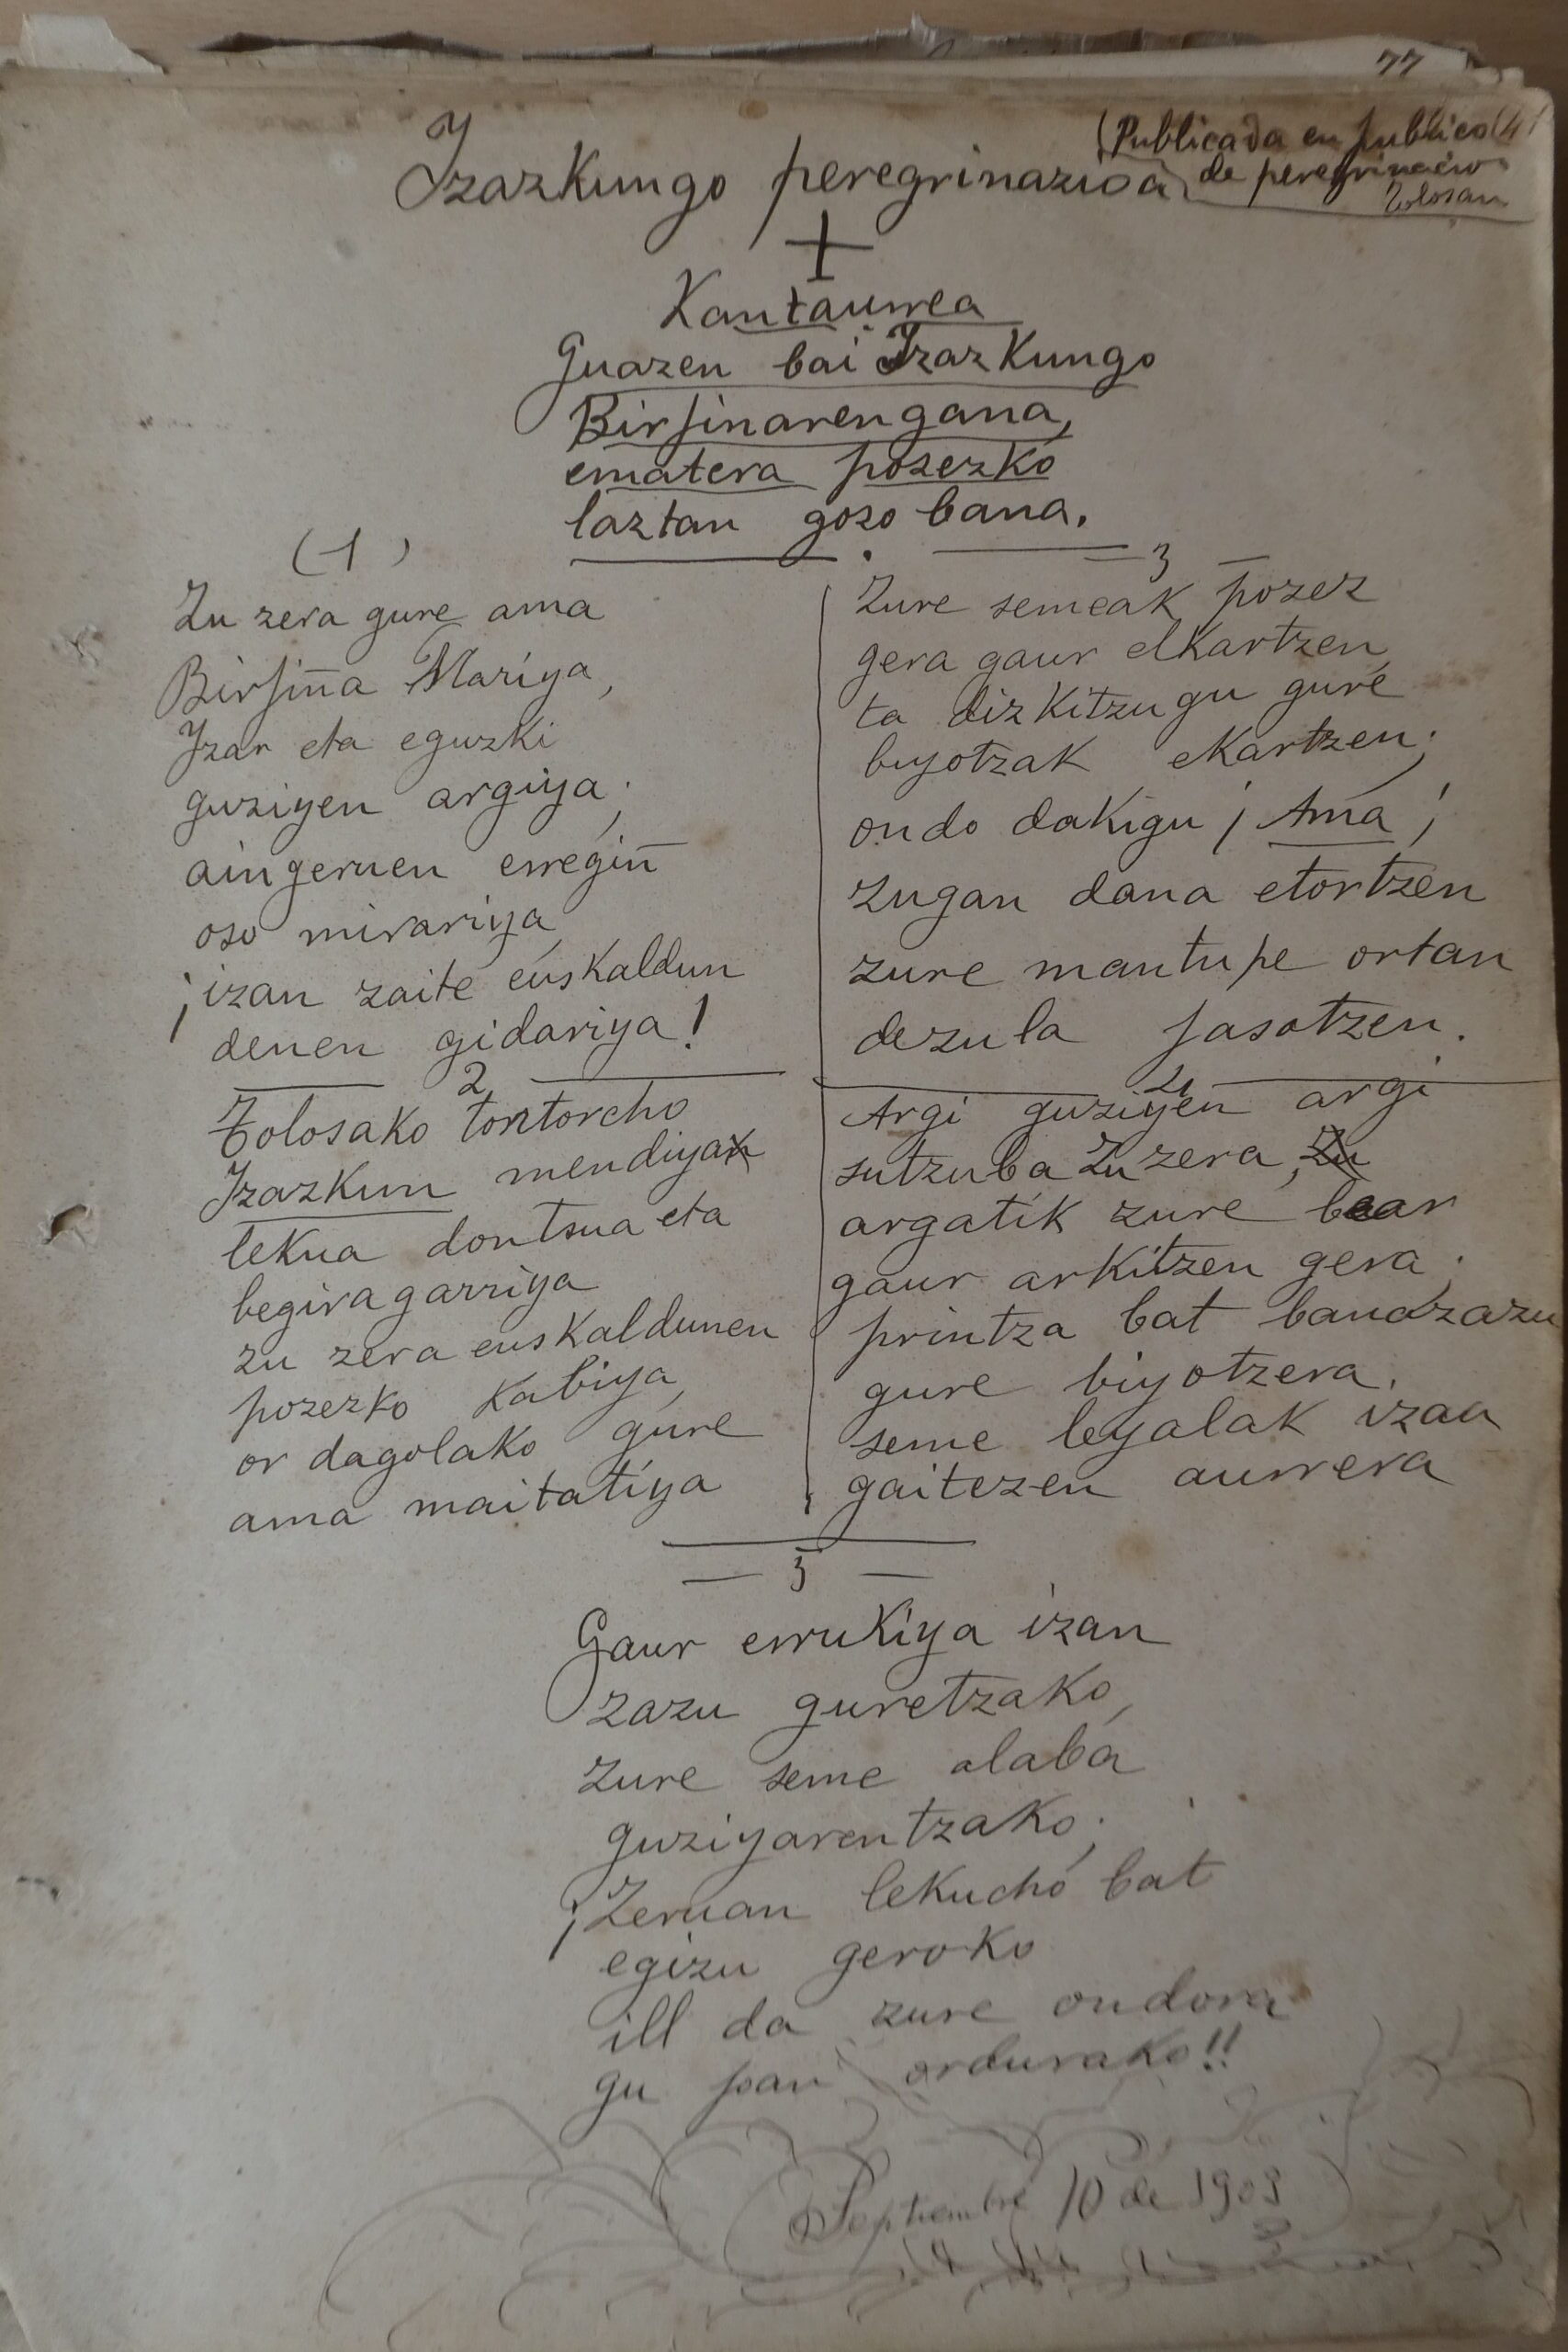 77
Izazkungo peregrinazioa
(Publicada en publico
de peregrinacion
Tolosan
Kantaurrea
Guazen bai Izazkungo
Birjinarengana,
ematera pozezko
laztan gozo bana.
(1)
Zu zera gure ama
Birjiña Mariya,
Izar eta eguzki
guziyen argiya;
aingeruen erregiñ
oso mirariya,
¡izan zaite euskaldun
denen gidariya!
2
Tolosako tontorcho
Izazkun mendiya
lekua dontsua eta
begiragarriya
zu zera euskaldunen
pozezko kabiya,
or dagolako gure
ama maitatiya
3
Zure semeak pozez
gera gaur elkartzen,
ta dizkitzugu gure
biyotzak ekartzen;
ondo dakigu ¡Ama!
zugan dana etortzen
zure mantupe ortan
dezula jasotzen.
4
Argi guziyen argi
sutzuba Zu zera, Zu
argatik zure bear
gaur arkitzen gera;
printza bat banazazu
gure biyotzera,
seme leyalak izan
gaitezen aurrera
5
Gaur errukiya izan
zazu guretzako,
zure seme alaba
guziyarentzako;
¡Zeruan lekucho bat
egizu geroko
ill da zure ondora
gu joan ordurako!!
Septiembre 10 de 1909